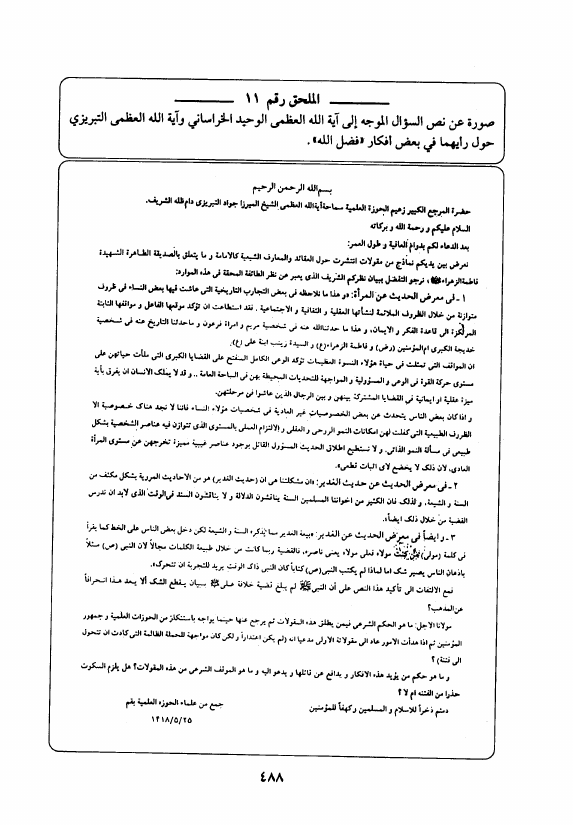 الملحق رقم ١١
صورة عن نص السؤال الموجه إلى آية الله العظمى الوحيد الخراساني وآية الله العظمى التبريزي
حول رأيهما في بعض أفكار «فضل الله».
بسم الله الرحمن الرحيم
حضرة المرجع الكبير زعيم الحوزة العلمية سماحة آية الله العظمى الشيخ الميرزا جواد التبريزى دام ظله الشريف.
السلام عليكم و رحمة الله و بركاته
بعد الدعاء لكم بدوام العافية و طول العمر:
نعرض بين يديكم نماذج من مقولات انتشرت حول العقائد والمعارف الشيعية كالامامة و ما يتعلق بالصديقة الطاهرة الشهيدة
فاطمة الزهراء، نرجو التفضل ببيان نظركم الشريف الذى يعبر عن نظر الطائفة المحقة في هذه الموارد:
١ - فى معرض الحديث عن المرأة: ذو هذا ما نلاحظه فى بعض التجارب التاريخية التى عاشت فيها بعض النساء فى ظروف
متوازنة من خلال الظروف الملائمة لنشأتها العقلية و الثقافية و الاجتماعية. فقد استطاعت ان تؤكد موقعها الفاعل و مواقفها الثابتة
المرتكزة الى قاعدة الفكر و الايمان، و هذا ما حدثنا الله عنه في شخصية مريم و امراة فرعون و ما حدثنا التاريخ عنه في شخصية
خديجة الكبرى ام المؤمنين (رض) و فاطمة الزهراء(ع) و السيدة زينب ابنة على (ع).
ان المواقف التى تمثلت في حياة هؤلاء النسوة العظيمات تؤكد الوعى الكامل المنفتح على القضايا الكبرى التى ملأت حياتهن على
مستوى حركة القوة فى الوعى و المسؤولية و المواجهة للتحديات المحيطة بهن في الساحة العامة .. و قد لا يملك الانسان ان يفرق بأية
ميزة عقلية او ايمانية في القضايا المشتركة بينهن و بين الرجال الذين عاشوا في مرحلتهن.
و اذا كان بعض الناس يتحدث عن بعض الخصوصيات غير العادية في شخصيات هؤلاء النساء فاننا لا نجد هناك خصوصية الا
الظروف الطبيعية التى كفلت لهن امكانات النمو الروحى و العقلى و الالتزام العملى بالمستوى الذى تتوازن فيه عناصر الشخصية بشكل
طبيعى فى مسألة النمو الذاتى. و لا نستطيع اطلاق الحديث المسؤول القائل بوجود عناصر غيبية مميزة تخرجهن عن مستوى المرأة
العادى، لان ذلك لا يخضع لاى اثبات قطعى».
٢ - فى معرض الحديث عن حديث الغدير: «ان مشكلتنا هى ان (حديث الغدير) هو من الاحاديث المروية بشكل مكثف من
السنة و الشيعة، و لذلك فان الكثير من اخواننا المسلمين السنة يناقشون الدلالة و لا يناقشون السند فى الوقت الذى لابد ان ندرس
القضية من خلال ذلك ايضاً».
٣ - و ايضاً في معرض الحديث عن الغدير: «بيعة الغدير مما يذكره السنة والشيعة لكن دخل بعض الناس على الخط كما يقرأ
فى كلمة (مولى) مولاه فعلى مولاه يعنى ناصره، فالقضية ربما كانت من خلال طبيعة الكلمات مجالاً لان النبى (ص) مثلاً
باذهان الناس يصير شك اما لماذا لم يكتب النبى(ص) كتاباً كان النبى ذاك الوقت يريد للتجربة ان تتحرك».
فمع الالتفات الى تأكيد هذا النص على أن النبى لم يبلغ قضية خلافة على ببيان يقطع الشك ألا يعد هذا انحرافاً
عن المذهب؟
مولانا الاجل: ما هو الحكم الشرعى فيمن يطلق هذه المقولات ثم يرجع عنها حينما يواجه باستنكار من الحوزات العلمية و جمهور
المؤمنين ثم اذا هدأت الأمور عاد الى مقولاته الاولى مدعيا انه (لم يكن اعتذاراً و لكن كان مواجهة للحملة الظالمة التى كادت ان تتحول
الى فتنة)؟
و ما هو حكم من يؤيد هذه الافكار و يدافع عن قائلها و يدعو اليه و ما هو الموقف الشرعى من هذه المقولات؟ هل يلزم السكوت
حذرا من الفتنه ام لا؟
دمتم ذخراً للاسلام و المسلمين وكهفاً للمؤمنين
جمع من علماء الحوزه العلمية بقم
١٤١٨/٥/٢٥
٤٨٨